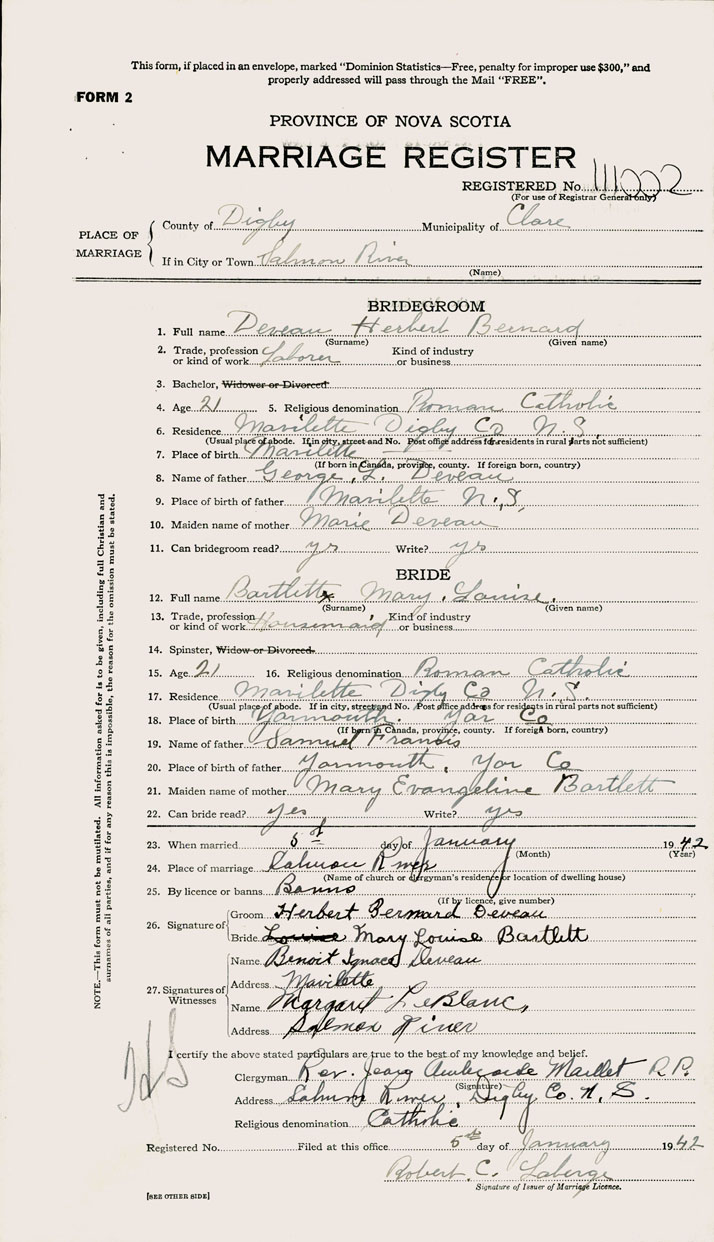 This form, if placed in an envelope, marked "Dominion Statistics—Free, penalty for improper use $300," and
properly addressed will pass through the Mail "FREE".
FORM 2
PROVINCE OF NOVA SCOTIA
MARRIAGE REGISTER
REGISTERED No. 111002
(For use of Registrar General only)
PLACE OF MARRIAGE
County of Digby Municipality of Clare
If in City or Town Salmon River
(Name)
BRIDEGROOM
1. Full name Deveau Herbert Bernard
(Surname) (Given name)
2. Trade, profession or kind of work Laborer Kind of industry or business
3. Bachelor, Widower or Divorced
4. Age 21 5. Religious denomination Roman Catholic
6. Residence Mavilette Digby Co N.S.
(Usual place of abode. If in city, street and No. Post office address for residents in rural parts not sufficient)
7. Place of birth Mavilette
(If born in Canada, province, county. If foreign born, country)
8. Name of father George L. Deveau
9. Place of birth of father Mavilette N.S.
10. Maiden name of mother Marie Deveau
11. Can bridegroom read? yes Write? yes
BRIDE
12. Full name Bartlett Mary Louise
(Surname) (Given name)
13. Trade, profession or kind of work Housemaid Kind of industry or business
14. Spinster, Widow or Divorced
15. Age 21 16. Religious denomination Roman Catholic
17. Residence Mavilette Digby Co N.S.
(Usual place of abode. If in city, street and No. Post office address for residents in rural parts not sufficient)
18. Place of birth Yarmouth. Yar Co
(If born in Canada, province, county. If foreign born, country)
19. Name of father Samuel Francis
20. Place of birth of father Yarmouth, Yar Co
21. Maiden name of mother Mary Evangeline Bartlett
22. Can bride read? yes Write? yes
23. When married 5 day of January 1942
(Month) (Year)
24. Place of marriage Salmon River
(Name of church or clergyman's residence or location of dwelling house)
25. By licence or banns Banns
(If by licence, give number)
26. Signature of
Groom Herbert Bernard Deveau
Bride Louise Mary Louise Bartlett
27. Signatures of Witnesses
Name Benoit Ignace Deveau
Address Mavilette
Name Margaret LeBlanc,
Address Salmon River
I certify the above stated particulars are true to the best of my knowledge and belief.
Clergyman Rev. Jean Ambroise Maillet P.P.
(Signature)
Address Salmon River, Digby Co. N.S.
Religious denomination Catholic
Registered No. Filed at this office 5th day of January 1942
Robert C. Laberge
Signature of Issuer of Marriage Licence.
[SEE OTHER SIDE]
NOTE.—This form must not be mutilated. All information asked for is to be given, including full Christian and
surnames of all parties, and if for any reason this is impossible, the reason for the omission must be stated.